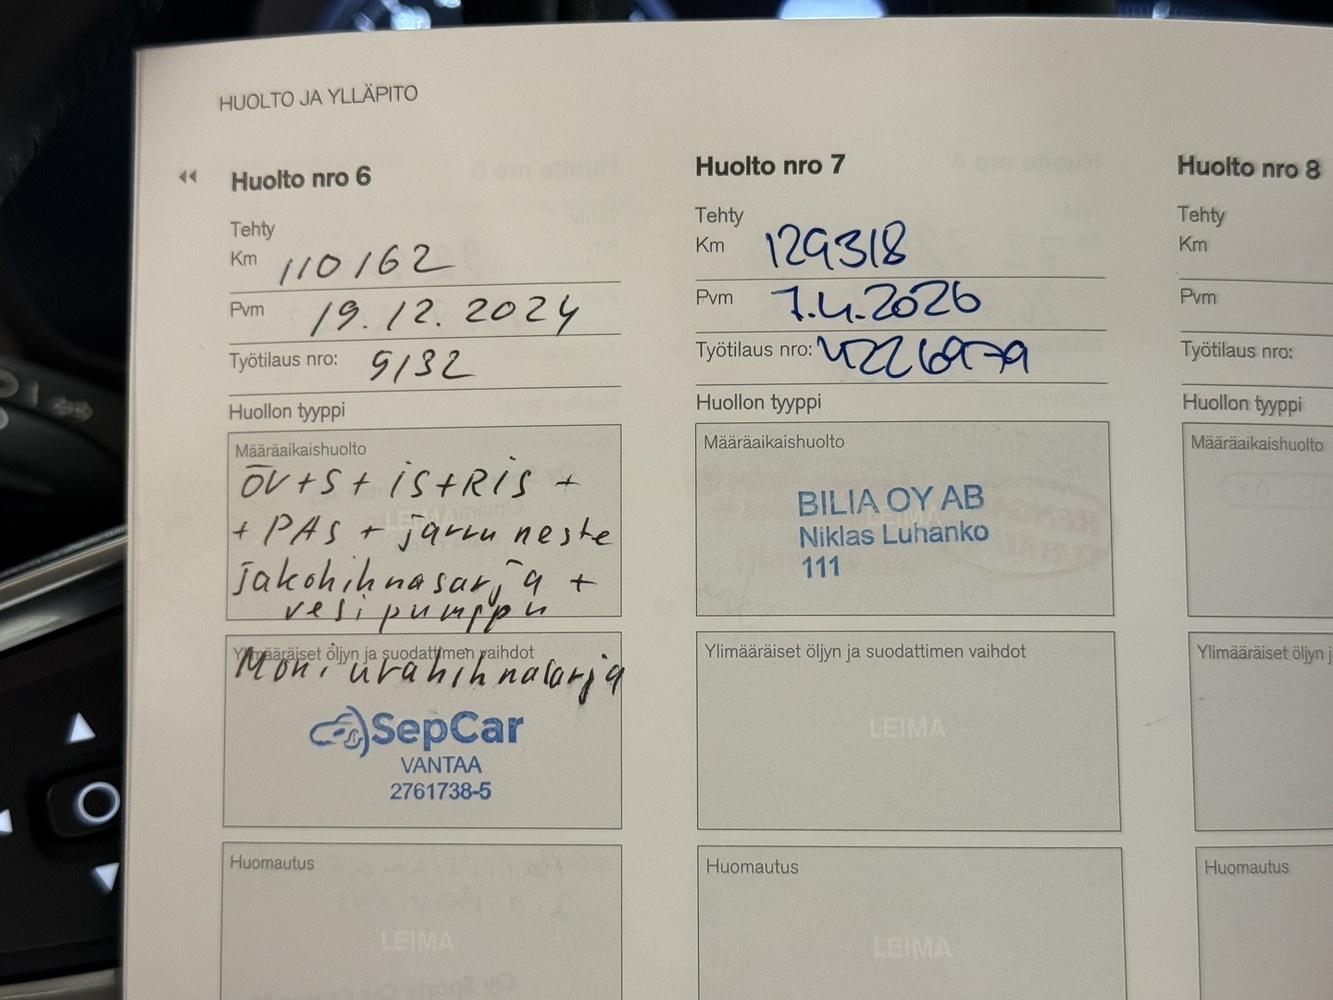 HUOLTO JA YLLÄPITO
Huolto nro 6
Tehty
Km 110162
Pvm 19.12.2024
Työtilaus nro: 9132
Huollon tyyppi
Määräaikaishuolto
ÖV+S+iS+RiS +
+ PAS + jarru neste
jakohihnasarja +
vesipumppu
Ylimääräiset öljyn ja suodattimen vaihdot
Moniurahihnasarja
SepCar
VANTAA
2761738-5
Huomautus
LEIMA
Huolto nro 7
Tehty
Km 129318
Pvm 7.4.2026
Työtilaus nro: 4226979
Huollon tyyppi
Määräaikaishuolto
BILIA OY AB
Niklas Luhanko
111
Ylimääräiset öljyn ja suodattimen vaihdot
LEIMA
Huomautus
LEIMA
Huolto nro 8
Tehty
Km
Pvm
Työtilaus nro:
Huollon tyyppi
Määräaikaishuolto
Ylimääräiset öljyn j
Huomautus